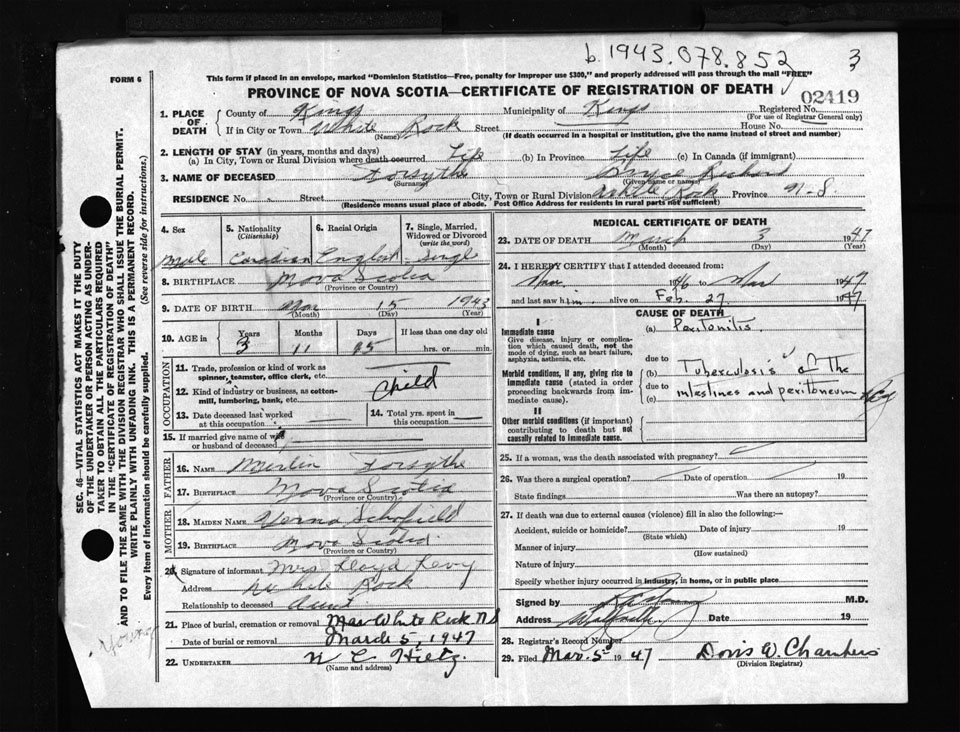 b.1943.078.852
3
FORM 6
This form if placed in an envelope, marked "Dominion Statistics—Free, penalty for improper use $300," and properly addressed will pass through the mail "FREE"
PROVINCE OF NOVA SCOTIA—CERTIFICATE OF REGISTRATION OF DEATH
02419
1. PLACE OF DEATH
County of Kings Municipality of Kings Registered No.
(For use of Registrar General only)
If in City or Town White Rock Street House No.
(Name) (If death occurred in a hospital or institution, give the name instead of street and number)
2. LENGTH OF STAY (in years, months and days)
(a) In City, Town or Rural Division where death occurred Life (b) In Province Life (c) In Canada (if immigrant)
3. NAME OF DECEASED Forsythe Richard
(Surname) (Given name or names)
RESIDENCE No. Street City, Town or Rural Division White Rock Province N-S
(Residence means usual place of abode. Post Office Address for residents in rural parts not sufficient)
SEC. 46—VITAL STATISTICS ACT MAKES IT THE DUTY
OF THE UNDERTAKER OR PERSON ACTING AS UNDER-
TAKER TO OBTAIN ALL THE PARTICULARS REQUIRED
IN THE "CERTIFICATE OF REGISTRATION OF DEATH"
AND TO FILE THE SAME WITH THE DIVISION REGISTRAR WHO SHALL ISSUE THE BURIAL PERMIT.
WRITE PLAINLY WITH UNFADING INK. THIS IS A PERMANENT RECORD.
Every item of information should be carefully supplied. (See reverse side for instructions.)
4. Sex
5. Nationality (Citizenship)
6. Racial Origin
7. Single, Married, Widowed or Divorced (write the word)
Male Canadian English Single
8. BIRTHPLACE Nova Scotia
(Province or Country)
9. DATE OF BIRTH Mar 15 1943
(Month) (Day) (Year)
10. AGE in Years Months Days If less than one day old
3 11 hrs. or min.
OCCUPATION
11. Trade, profession or kind of work as
spinner, teamster, office clerk, etc.
12. Kind of industry or business, as cotton-
mill, lumbering, bank, etc.
Child
13. Date deceased last worked
at this occupation
14. Total yrs. spent in
this occupation
15. If married give name of wife
or husband of deceased
FATHER
16. NAME Merlin Forsythe
17. BIRTHPLACE Nova Scotia
(Province or Country)
MOTHER
18. MAIDEN NAME Verna Schofield
19. BIRTHPLACE Nova Scotia
(Province or Country)
20. Signature of informant Mrs Lloyd Levy
Address White Rock
Relationship to deceased Aunt
21. Place of burial, cremation or removal White Rock N S
Date of burial or removal March 5, 1947
22. UNDERTAKER W C Hietz
(Name and address)
MEDICAL CERTIFICATE OF DEATH
23. DATE OF DEATH March 3 1947
(Month) (Day) (Year)
24. I HEREBY CERTIFY that I attended deceased from:
1946 to Mar 1947
and last saw him alive on Feb. 27 1947
CAUSE OF DEATH
I
Immediate cause
Give disease, injury or complica-
tion which caused death, not the
mode of dying, such as heart failure,
asphyxia, asthenia, etc.
(a) Peritonitis.
due to
Morbid conditions, if any, giving rise to
immediate cause (stated in order
proceeding backwards from im-
mediate cause).
(b) Tuberculosis of the
due to
(c) intestines and peritoneum
II
Other morbid conditions (if important)
contributing to death but not
causally related to immediate cause.
25. If a woman, was the death associated with pregnancy?
26. Was there a surgical operation? Date of operation 19
State findings Was there an autopsy?
27. If death was due to external causes (violence) fill in also the following:—
Accident, suicide or homicide? Date of injury 19
(State which)
Manner of injury
(How sustained)
Nature of injury
Specify whether injury occurred in industry, in home, or in public place
Signed by M.D.
Address Date 19
28. Registrar's Record Number
29. Filed Mar. 5 1947 Doris W. Chambers
(Division Registrar)